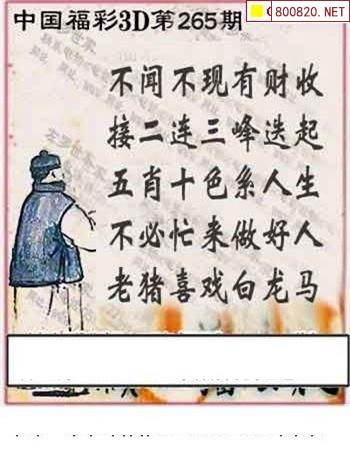 中国福彩3D第265期
800820.NET
不闻不现有财收
接二连三峰迭起
五肖十色系人生
不必忙来做好人
老猪喜戏白龙马